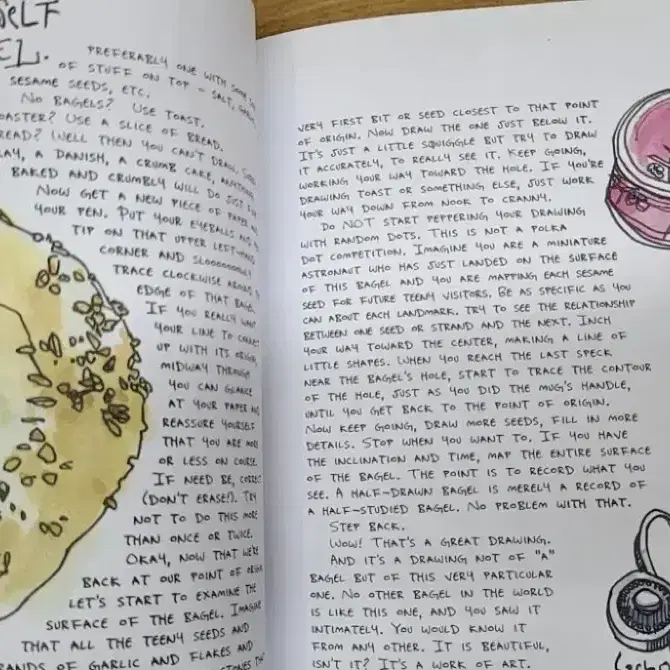 SELF
EL.
PREFERABLY ONE WITH SOME
OF STUFF ON TOP - SALT,
SESAME SEEDS, ETC.
NO BAGELS? USE TOAST.
OASTER? USE A SLICE OF BREAD.
READ? WELL THEN YOU CAN'T DRAW.
A DANISH, A CRUMB CAKE,
BAKED AND CRUMBLY WILL DO JUST
NOW GET A NEW PIECE OF PAPER
YOUR PEN. PUT YOUR EYEBALLS AND
TIP ON THAT UPPER LEFT-HAND
CORNER AND
TRACE CLOCKWISE AROUND
EDGE OF THAT BAGEL
IF YOU REALLY WANT
YOUR LINE TO CONNECT
UP WITH ITS ORIGIN,
MIDWAY THROUGH
YOU CAN GLANCE
AT YOUR PAPER AND
REASSURE YOURSELF
THAT YOU ARE MORE
OR LESS ON COURSE.
IF NEED BE, CORRECT
(DON'T ERASE!). TRY
NOT TO DO THIS MORE
THAN ONCE OR TWICE.
OKAY, NOW THAT WE'RE
BACK AT OUR POINT OF ORIGIN
LET'S START TO EXAMINE THE
SURFACE OF THE BAGEL. IMAGINE
THAT ALL THE TEENY SEEDS AND
RANDS OF GARLIC AND FLAKES AND
VERY FIRST BIT OR SEED CLOSEST TO THAT POINT
OF ORIGIN. NOW DRAW THE ONE JUST BELOW IT.
IT'S JUST A LITTLE SQUIGGLE BUT TRY TO DRAW
IT ACCURATELY, TO REALLY SEE IT. KEEP GOING,
WORKING YOUR WAY TOWARD THE HOLE. IF YOU'RE
DRAWING TOAST OR SOMETHING ELSE, JUST WORK
YOUR WAY DOWN FROM NOOK TO CRANNY.
DO NOT START PEPPERING YOUR DRAWING
WITH RANDOM DOTS. THIS IS NOT A POLKA
DOT COMPETITION. IMAGINE YOU ARE A MINIATURE
ASTRONAUT WHO HAS JUST LANDED ON THE SURFACE
OF THIS BAGEL AND YOU ARE MAPPING EACH SESAME
SEED FOR FUTURE TEENY VISITORS. BE AS SPECIFIC AS YOU
CAN ABOUT EACH LANDMARK. TRY TO SEE THE RELATIONSHIP
BETWEEN ONE SEED OR STRAND AND THE NEXT. INCH
YOUR WAY TOWARD THE CENTER, MAKING A LINE OF
LITTLE SHAPES. WHEN YOU REACH THE LAST SPECK
NEAR THE BAGEL'S HOLE, START TO TRACE THE CONTOUR
OF THE HOLE, JUST AS YOU DID THE MUG'S HANDLE,
UNTIL YOU GET BACK TO THE POINT OF ORIGIN.
NOW KEEP GOING, DRAW MORE SEEDS, FILL IN MORE
DETAILS. STOP WHEN YOU WANT TO. IF YOU HAVE
THE INCLINATION AND TIME, MAP THE ENTIRE SURFACE
OF THE BAGEL. THE POINT IS TO RECORD WHAT YOU
SEE. A HALF-DRAWN BAGEL IS MERELY A RECORD OF
A HALF-STUDIED BAGEL. NO PROBLEM WITH THAT.
STEP BACK.
WOW! THAT'S A GREAT DRAWING.
AND IT'S A DRAWING NOT OF "A"
BAGEL BUT OF THIS VERY PARTICULAR
ONE. NO OTHER BAGEL IN THE WORLD
IS LIKE THIS ONE, AND YOU SAW IT
INTIMATELY. YOU WOULD KNOW IT
FROM ANY OTHER. IT IS BEAUTIFUL,
ISN'T IT? IT'S A WORK OF ART.